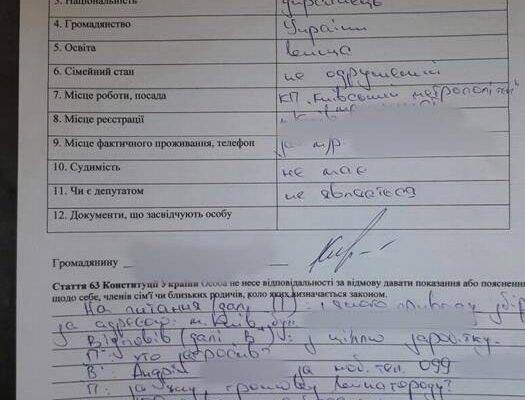 3. Національність українець
4. Громадянство України
5. Освіта вища
6. Сімейний стан не одружений
7. Місце роботи, посада КП "Київський метрополітен"
8. Місце реєстрації
9. Місце фактичного проживання, телефон за м/р
10. Судимість не має
11. Чи є депутатом не являється
12. Документи, що засвідчують особу
Громадянину
Стаття 63 Конституції України Особа не несе відповідальності за відмову давати показання або пояснення
щодо себе, членів сім'ї чи близьких родичів, коло яких визначається законом.
На питання (далі П): з якого приводу
за адресою: м. Київ, вул.
Відповів (далі В): з ціллю заробітку.
П: хто запросив?
В: Андрій за моб. тел. 099
П: за яку грошову винагороду?